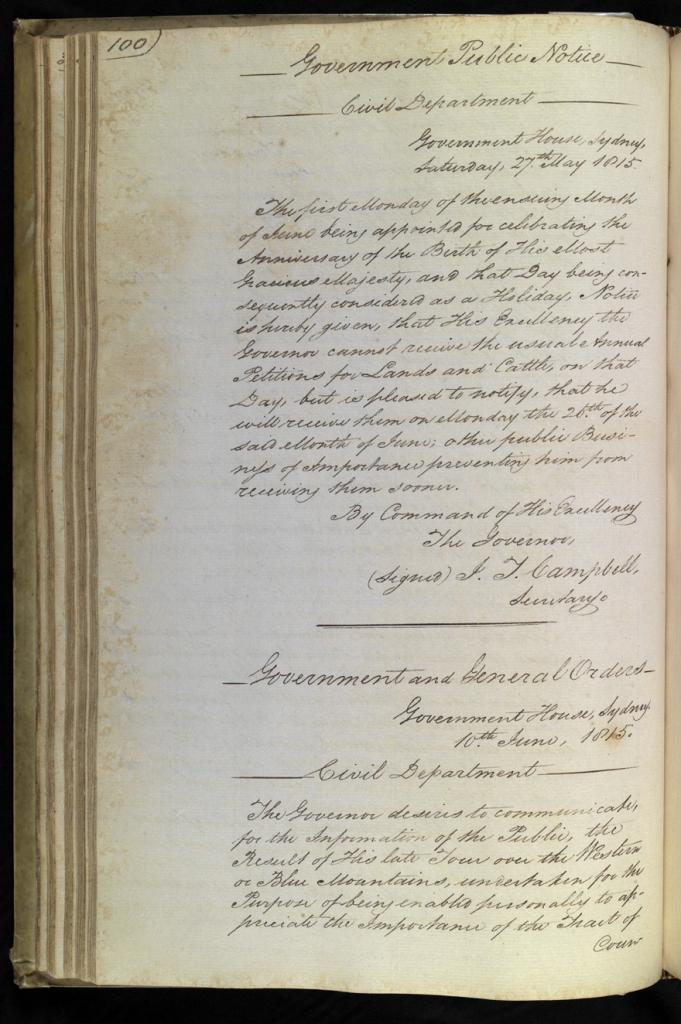 100)
Government Public Notice
Civil Department
Government House, Sydney,
Saturday, 27th May 1815.
The first Monday of the ensuing Month
of June being appointed for celebrating the
Anniversary of the Birth of His Most
Gracious Majesty, and that Day being con-
sequently considered as a Holiday, Notice
is hereby given, that His Excellency the
Governor cannot receive the usual Annual
Petitions for Lands and Cattle, on that
Day, but is pleased to notify, that he
will receive them on Monday the 26th of the
said Month of June; other public Busi-
ness of Importance preventing him from
receiving them sooner.
By Command of His Excellency
The Governor,
(Signed) J. T. Campbell,
Secretary
Government and General Orders
Government House, Sydney
10th June, 1815.
Civil Department
The Governor desires to communicate,
for the Information of the Public, the
Result of His late Tour over the Western
or Blue Mountains, undertaken for the
Purpose of being enabled personally to ap-
preciate the Importance of the Tract of
Coun